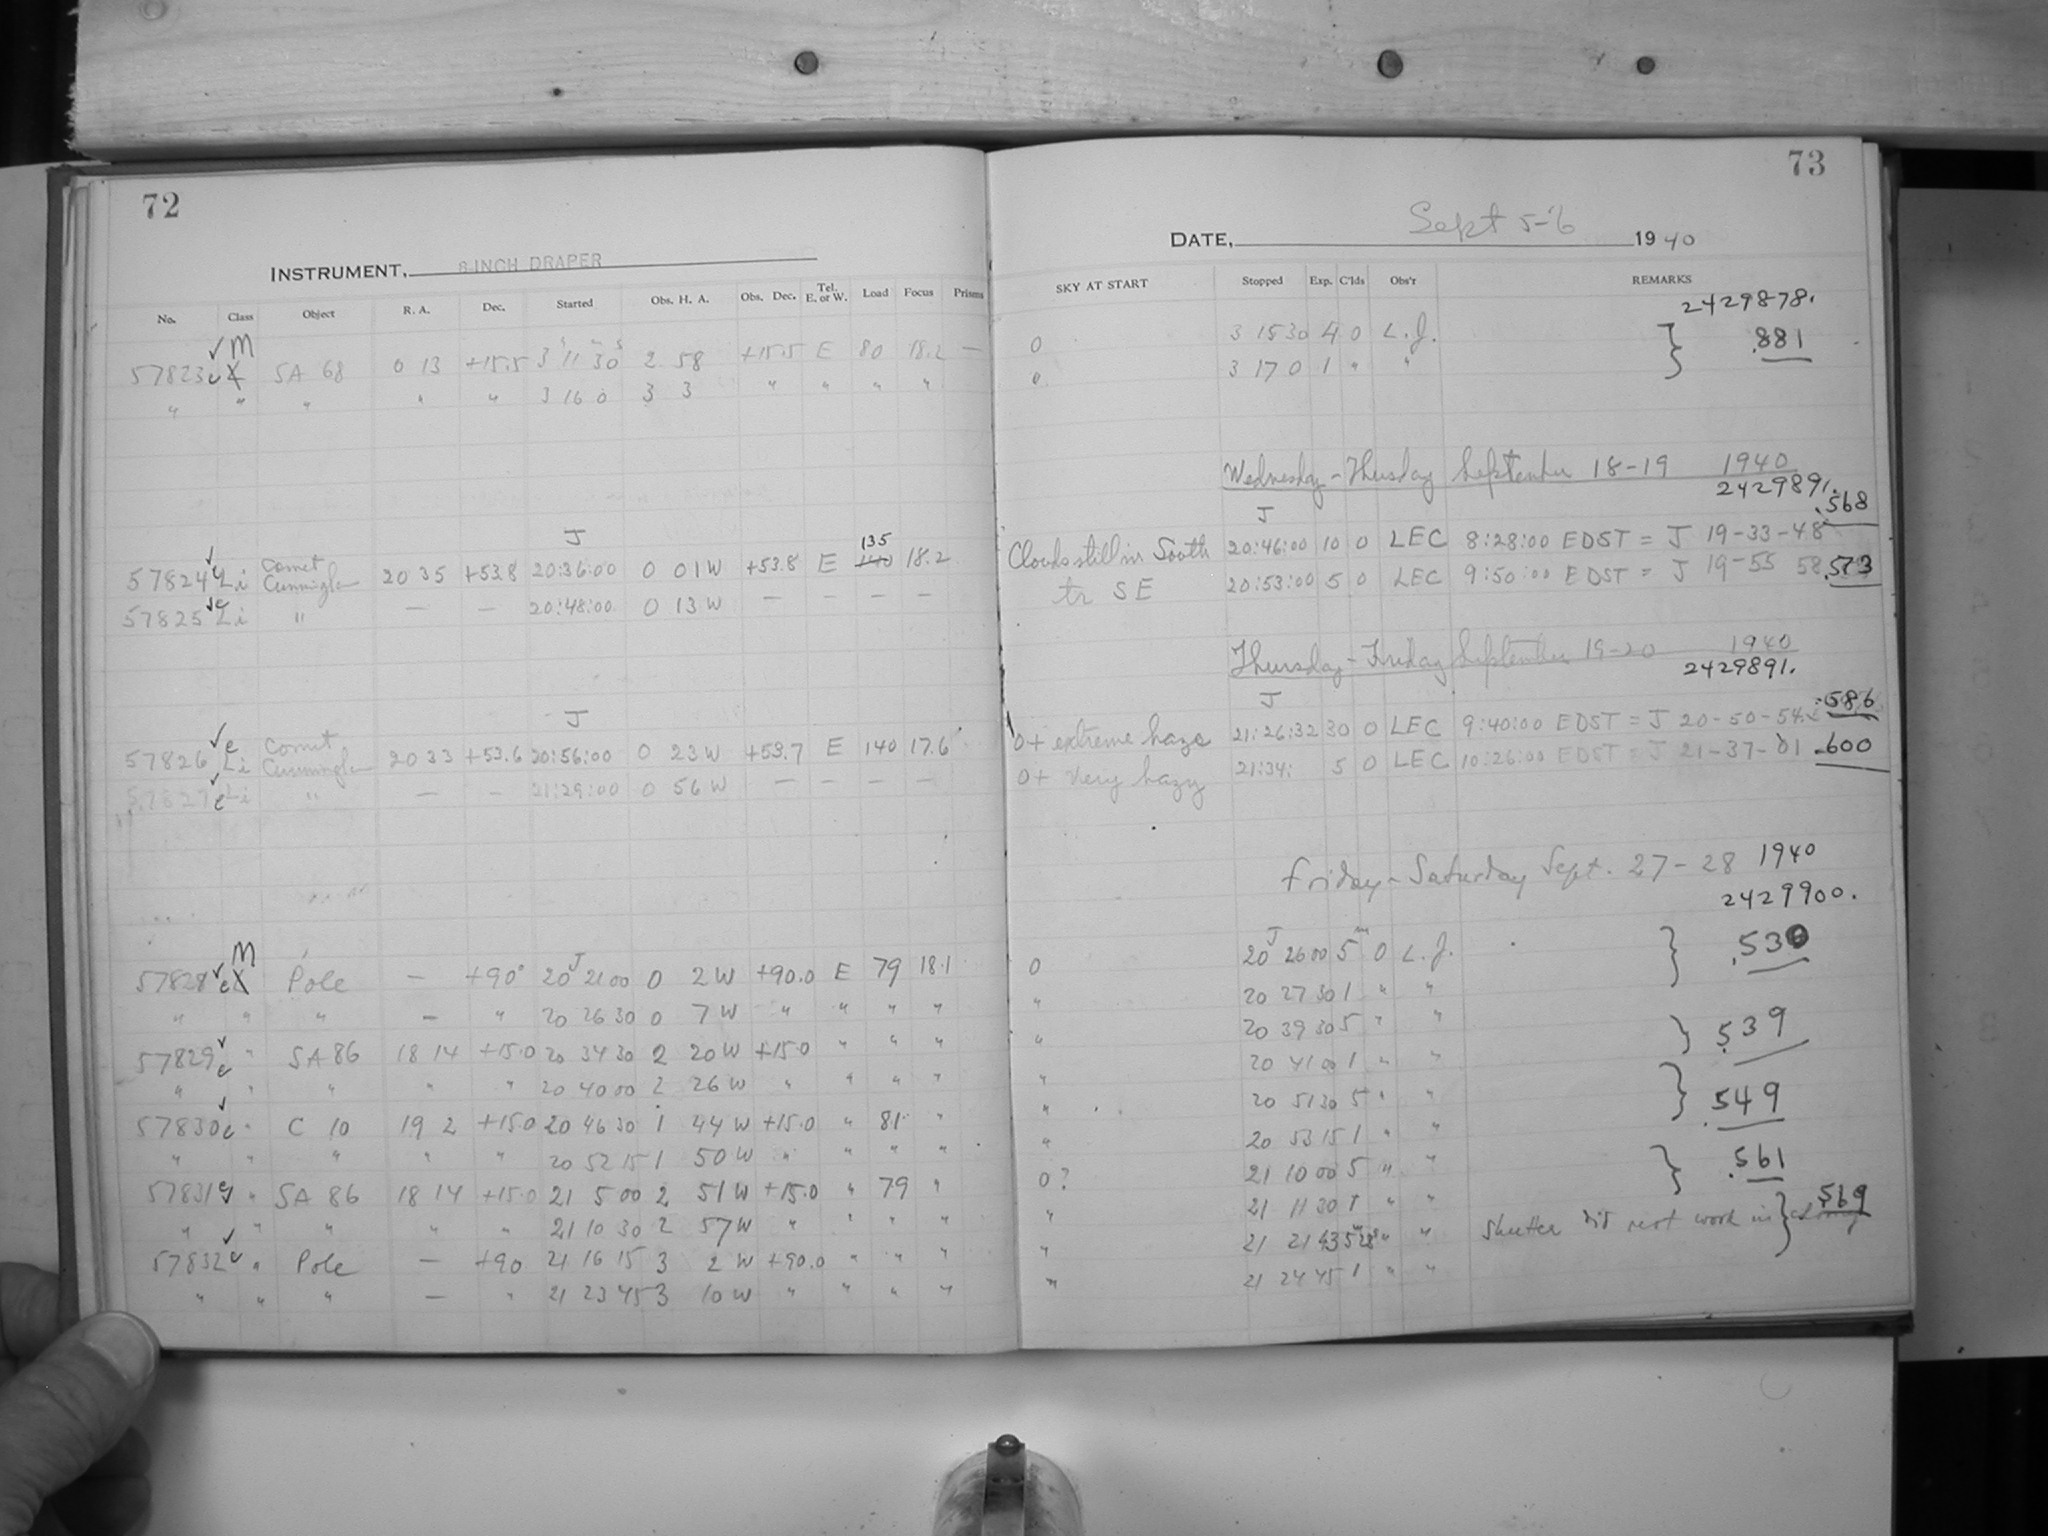 72
INSTRUMENT, 8-INCH DRAPER
No. Class Object R. A. Dec. Started Obs. H. A. Obs. Dec. Tel. E. or W. Load Focus Prisms
M
57823 SA 68 0 13 +15.5 3h 11m 30s 2 58 +15.5 E 80 18.2 —
" " " " " 3 16 0 3 3 " " " "
J
57824 Li Comet Cunningham 20 35 +53.8 20:36:00 0 01W +53.8 E 135 140 18.2
57825 Li " — — 20:48:00 0 13 W — — — —
J
57826 Li Comet Cunningham 20 33 +53.6 20:56:00 0 23W +53.7 E 140 17.6
57827 Li " — — 21:29:00 0 56 W — — — —
M
57828 X Pole — +90° 20J 21 00 0 2 W +90.0 E 79 18.1
" " " — " 20 26 30 0 7 W " " " "
57829 " SA 86 18 14 +15.0 20 34 30 2 20W +15.0 " " "
" " " " " 20 40 00 2 26 W " " " "
57830 " C 10 19 2 +15.0 20 46 30 1 44 W +15.0 " 81 "
" " " " " 20 52 15 1 50 W " " " "
57831 " SA 86 18 14 +15.0 21 5 00 2 51 W +15.0 " 79 "
" " " " " 21 10 30 2 57 W " " " "
57832 " Pole — +90 21 16 15 3 2 W +90.0 " " "
" " " — " 21 23 45 3 10 W " " " "
73
DATE, Sept 5-6 1940
SKY AT START Stopped Exp. C'lds Obs'r REMARKS
2429878.
0 3 15 30 4 0 L.J. .881
0 3 17 0 1 " "
Wednesday - Thursday September 18-19 1940
2429891.
J .568
Clouds still in South 20:46:00 10 0 LEC 8:28:00 EDST = J 19-33-48
to SE 20:53:00 5 0 LEC 9:50:00 EDST = J 19-55 58 .573
Thursday - Friday September 19-20 1940
2429891.
J .586
0+ extreme haze 21:26:32 30 0 LEC 9:40:00 EDST = J 20-50-54
0+ very hazy 21:34: 5 0 LEC 10:26:00 EDST = J 21-37-01 .600
Friday - Saturday Sept. 27-28 1940
2429900.
0 20J 26 00 5m 0 L.J. .530
" 20 27 30 1 " "
" 20 39 30 5 " " .539
" 20 41 00 1 " "
" 20 51 30 5 " " .549
" 20 53 15 1 " "
0? 21 10 00 5 " " .561
" 21 11 30 1 " "
" 21 21 43 5m 28s " " Shutter did not work in .569
" 21 24 45 1 " "